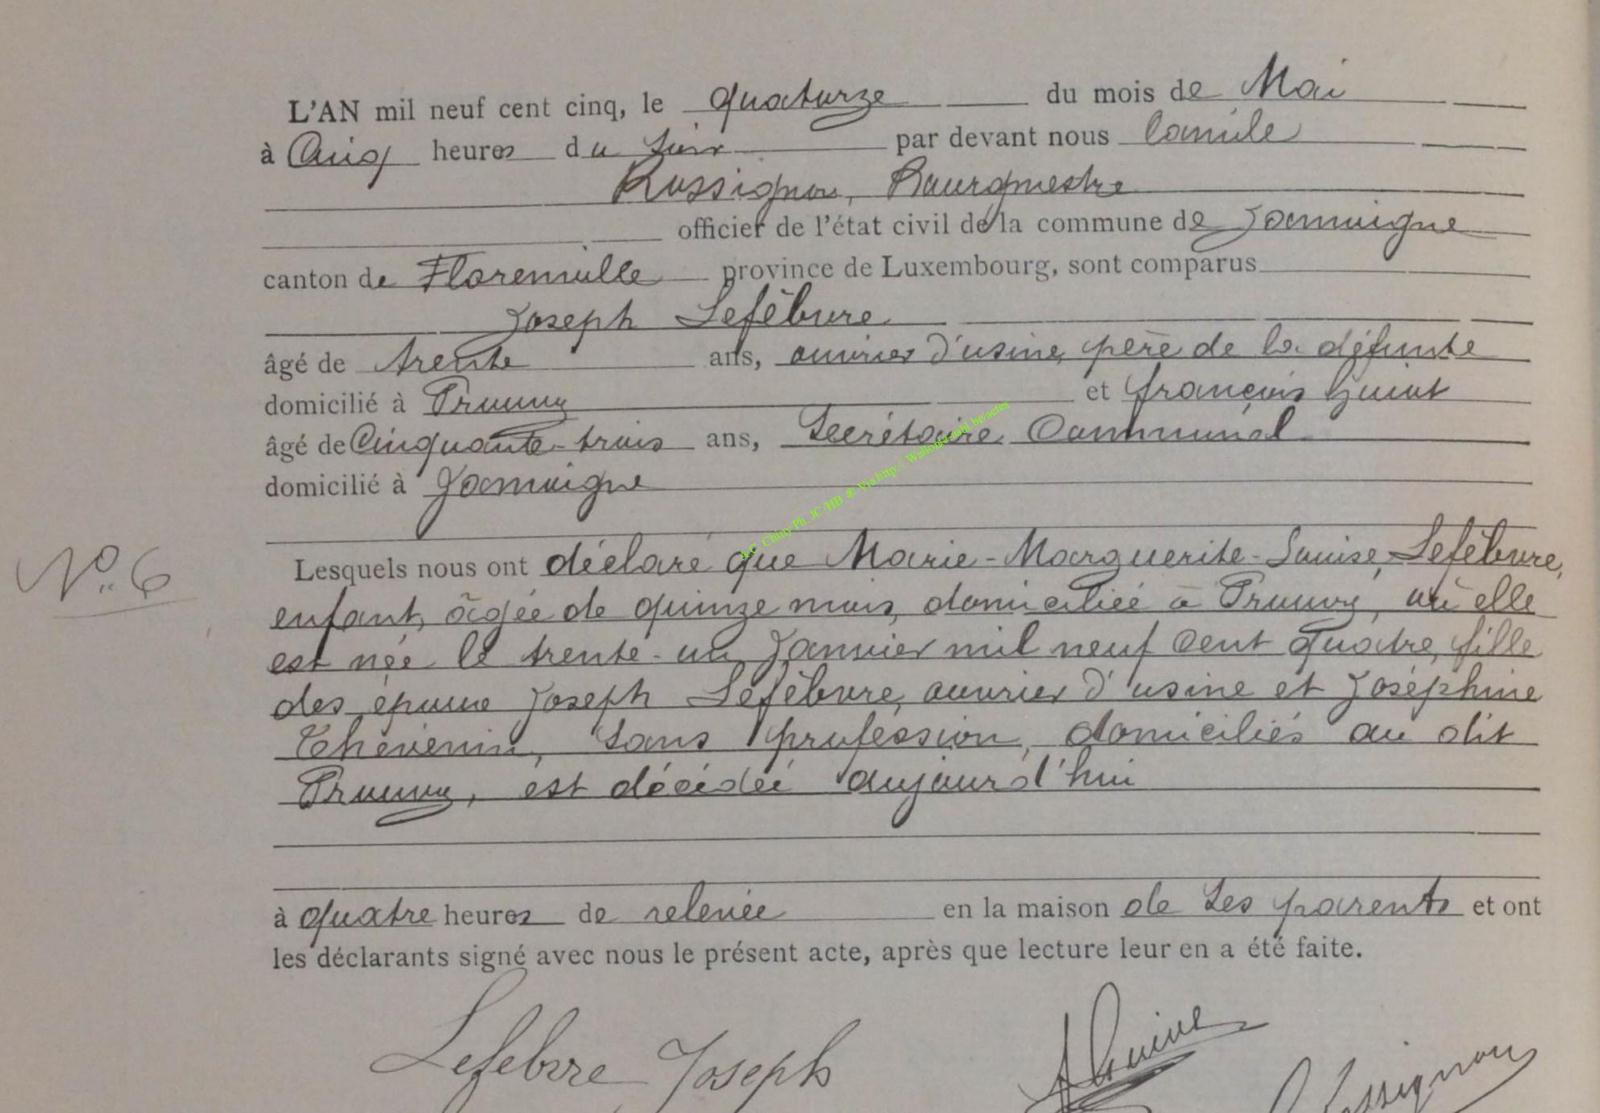 L'AN mil neuf cent cinq, le quatorze du mois de Mai
à Cinq heures du soir par devant nous Camile
Rossignon, Bourgmestre
officier de l'état civil de la commune de Jamoigne
canton de Florenville province de Luxembourg, sont comparus
Joseph Lefèbvre
âgé de trente ans, ouvrier d'usine, père de la défunte
domicilié à Prouvy et françois Guiot
âgé de Cinquante-trois ans, Secrétaire Communal
domicilié à Jamoigne
N° 6
Lesquels nous ont déclaré que Marie-Marguerite-Louise Lefèbvre,
enfant, âgée de quinze mois, domiciliée à Prouvy, où elle
est née le trente-un Janvier mil neuf cent quatre, fille
des époux Joseph Lefèbvre, ouvrier d'usine et Joséphine
Thévenin, sans profession, domiciliés au dit
Prouvy, est décédée aujourd'hui
à quatre heures de relevée en la maison de ses parents et ont
les déclarants signé avec nous le présent acte, après que lecture leur en a été faite.
Lefebvre Joseph
Rossignon